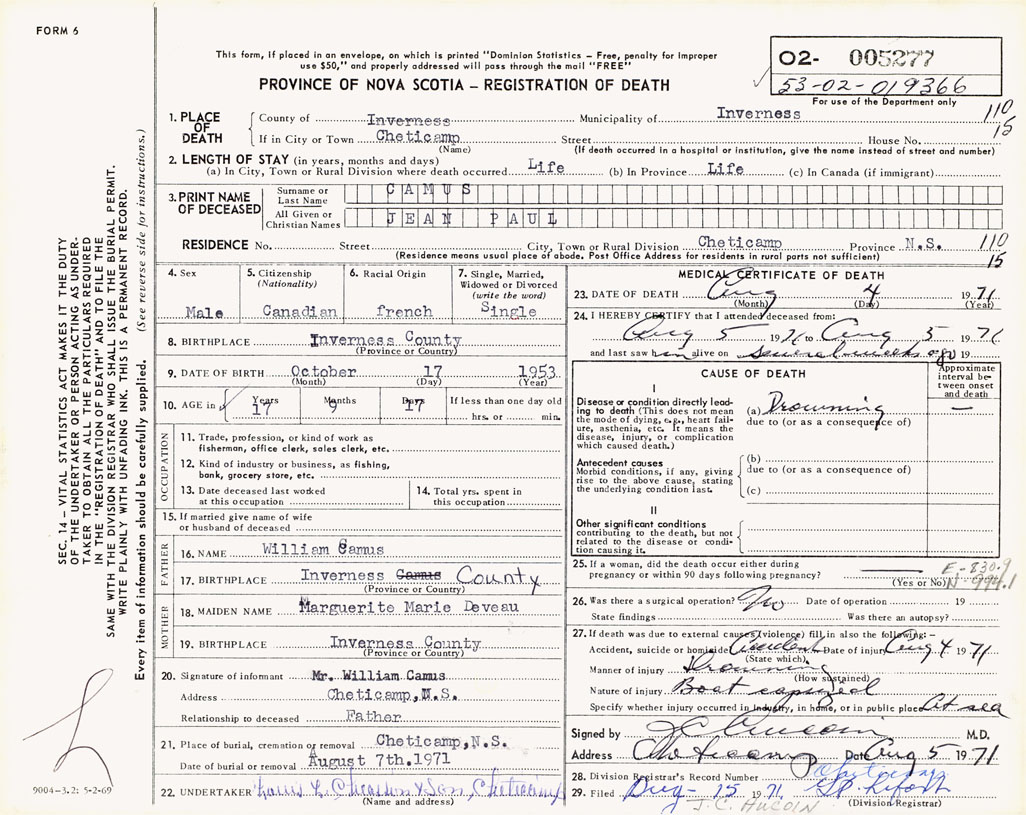 FORM 6
This form, if placed in an envelope, on which is printed "Dominion Statistics – Free, penalty for improper
use $50," and properly addressed will pass through the mail "FREE"
PROVINCE OF NOVA SCOTIA – REGISTRATION OF DEATH
02- 005277
53-02-019366
For use of the Department only
1. PLACE OF DEATH
County of Inverness Municipality of Inverness 110
If in City or Town Cheticamp Street House No. 15
(Name) (If death occurred in a hospital or institution, give the name instead of street and number)
2. LENGTH OF STAY (in years, months and days)
(a) In City, Town or Rural Division where death occurred Life (b) In Province Life (c) In Canada (if immigrant)
3. PRINT NAME OF DECEASED
Surname or Last Name CAMUS
All Given or Christian Names JEAN PAUL
RESIDENCE No. Street City, Town or Rural Division Cheticamp Province N.S. 110
(Residence means usual place of abode. Post Office Address for residents in rural parts not sufficient) 15
4. Sex Male
5. Citizenship (Nationality) Canadian
6. Racial Origin french
7. Single, Married, Widowed or Divorced (write the word) Single
8. BIRTHPLACE Inverness County
(Province or Country)
9. DATE OF BIRTH October 17 1953
(Month) (Day) (Year)
10. AGE in Years Months Days If less than one day old
17 9 17 hrs. or min.
OCCUPATION
11. Trade, profession, or kind of work as
fisherman, office clerk, sales clerk, etc.
12. Kind of industry or business, as fishing,
bank, grocery store, etc.
13. Date deceased last worked
at this occupation
14. Total yrs. spent in
this occupation
15. If married give name of wife
or husband of deceased
FATHER
16. NAME William Camus
17. BIRTHPLACE Inverness Camus County
(Province or Country)
MOTHER
18. MAIDEN NAME Marguerite Marie Deveau
19. BIRTHPLACE Inverness County
(Province or Country)
20. Signature of informant Mr. William Camus
Address Cheticamp,N.S.
Relationship to deceased Father
21. Place of burial, cremation or removal Cheticamp,N.S.
Date of burial or removal August 7th.1971
22. UNDERTAKER & Son, Cheticamp
(Name and address)
MEDICAL CERTIFICATE OF DEATH
23. DATE OF DEATH Aug 4 1971
(Month) (Day) (Year)
24. I HEREBY CERTIFY that I attended deceased from:
Aug 5 1971 to Aug 5 1971
and last saw him alive on several weeks ago 19
CAUSE OF DEATH
Approximate interval between onset and death
I
Disease or condition directly leading
to death (This does not mean
the mode of dying, e.g., heart failure,
asthenia, etc. It means the
disease, injury, or complication
which caused death.)
(a) Drowning —
due to (or as a consequence of)
Antecedent causes
Morbid conditions, if any, giving
rise to the above cause, stating
the underlying condition last.
(b)
due to (or as a consequence of)
(c)
II
Other significant conditions
contributing to the death, but not
related to the disease or condition
causing it.
25. If a woman, did the death occur either during
pregnancy or within 90 days following pregnancy?
(Yes or No)
E-830.9
N-994.1
26. Was there a surgical operation? No Date of operation 19
State findings Was there an autopsy?
27. If death was due to external causes (violence) fill in also the following:–
Accident, suicide or homicide Accident Date of injury Aug 4 1971
(State which)
Manner of injury Drowning
(How sustained)
Nature of injury Boat capsized
Specify whether injury occurred in industry, in home, or in public place At sea
Signed by J C Aucoin M.D.
Address Cheticamp Date Aug 5 1971
28. Division Registrar's Record Number
29. Filed 15 1971
(Division Registrar)
J.C. AUCOIN
SEC. 14 – VITAL STATISTICS ACT MAKES IT THE DUTY
OF THE UNDERTAKER OR PERSON ACTING AS UNDERTAKER
TO OBTAIN ALL THE PARTICULARS REQUIRED
IN THE "REGISTRATION OF DEATH" AND TO FILE THE
SAME WITH THE DIVISION REGISTRAR WHO SHALL ISSUE THE BURIAL PERMIT.
WRITE PLAINLY WITH UNFADING INK. THIS IS A PERMANENT RECORD.
Every item of information should be carefully supplied. (See reverse side for instructions.)
9004-3.2: 5-2-69